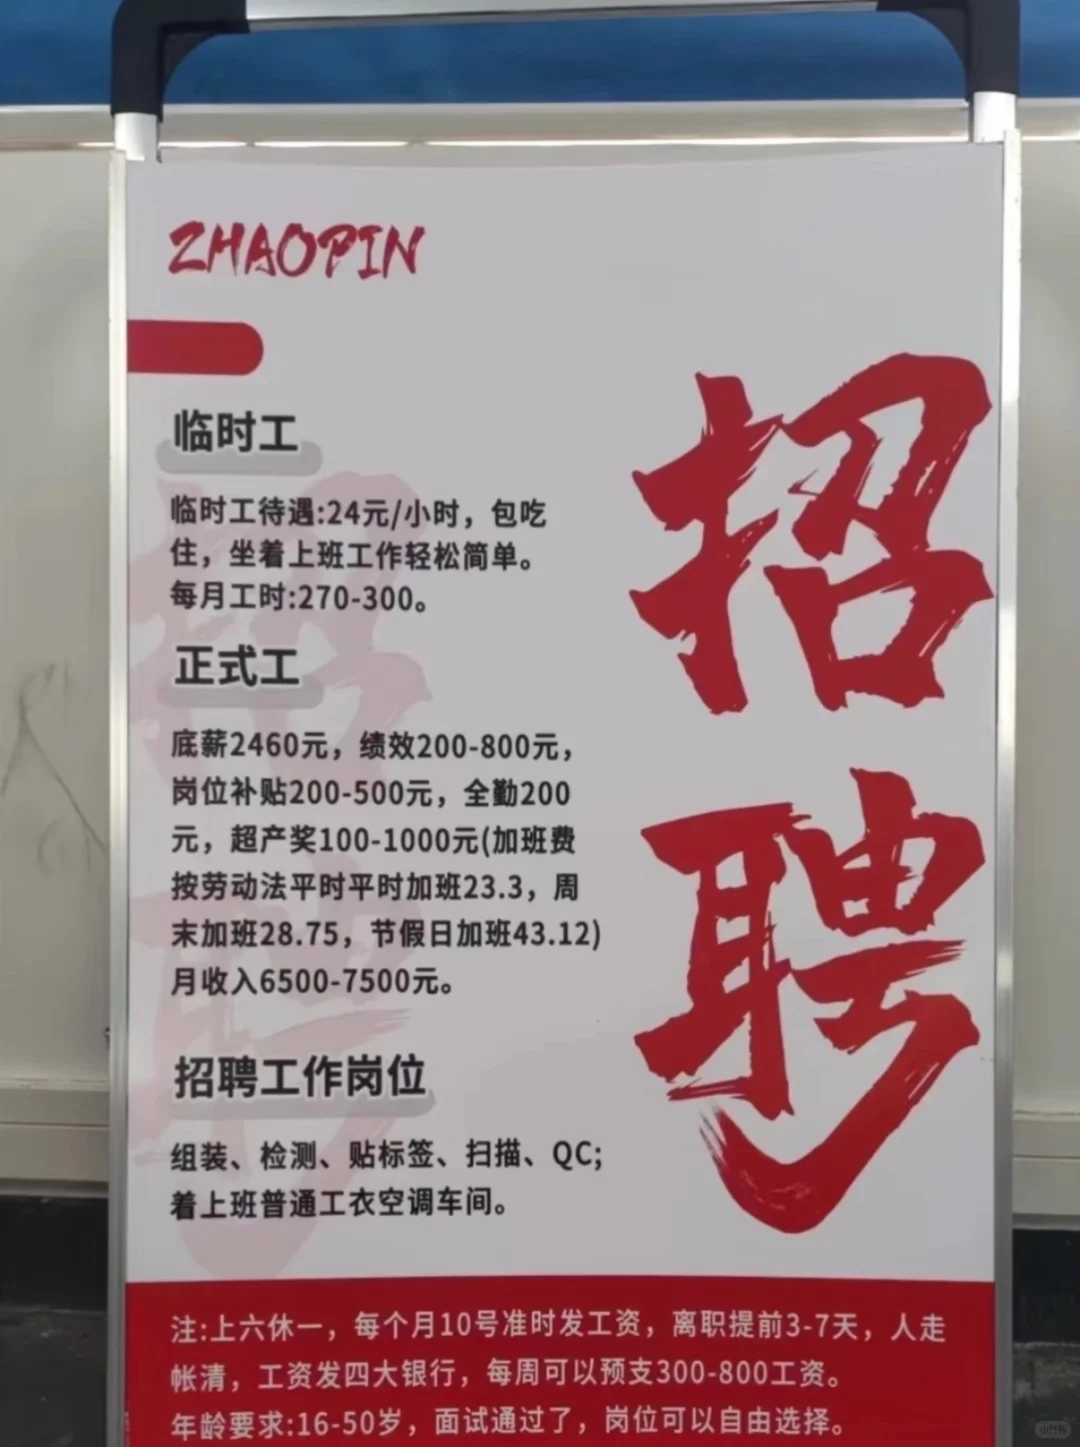 ZHAOPIN
招聘
临时工
临时工待遇:24元/小时，包吃
住，坐着上班工作轻松简单。
每月工时:270-300。
正式工
底薪2460元，绩效200-800元，
岗位补贴200-500元，全勤200
元，超产奖100-1000元(加班费
按劳动法平时平时加班23.3，周
末加班28.75，节假日加班43.12)
月收入6500-7500元。
招聘工作岗位
组装、检测、贴标签、扫描、QC;
着上班普通工衣空调车间。
注:上六休一，每个月10号准时发工资，离职提前3-7天，人走
帐清，工资发四大银行，每周可以预支300-800工资。
年龄要求:16-50岁，面试通过了，岗位可以自由选择。
小红书